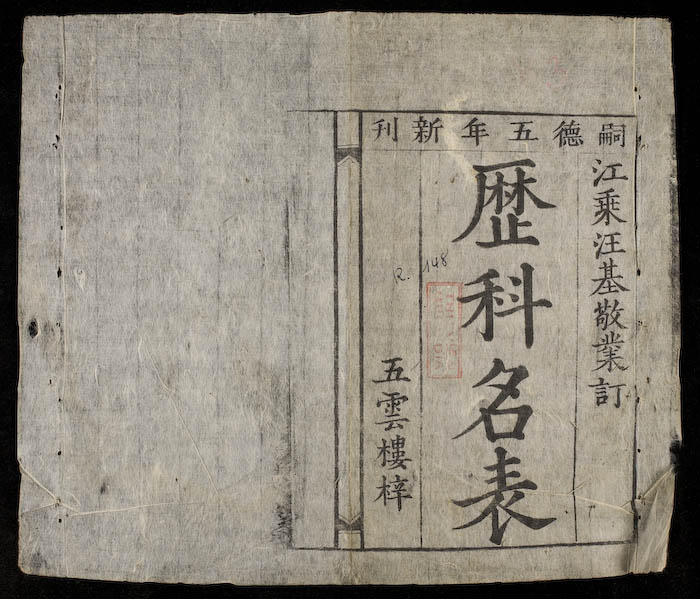 嗣德五年新刊
江乘汪基敬業訂
歷科名表
五雲樓梓
R. 148